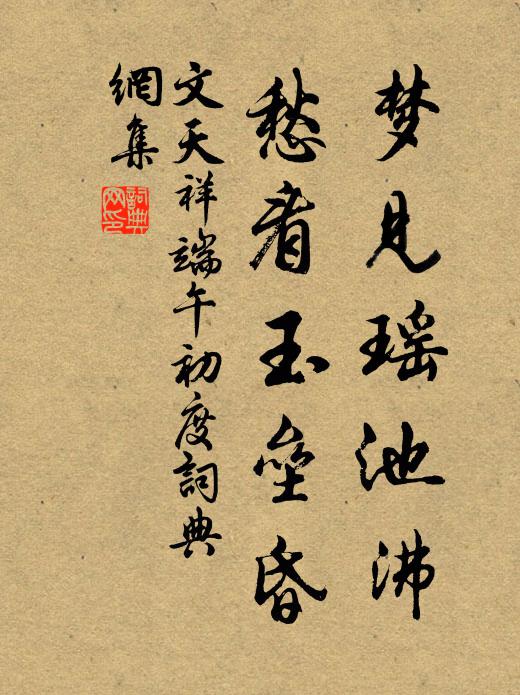 梦见瑶池沸
愁看玉垒昏
文天祥端午初度詞典
網集
詞典網印